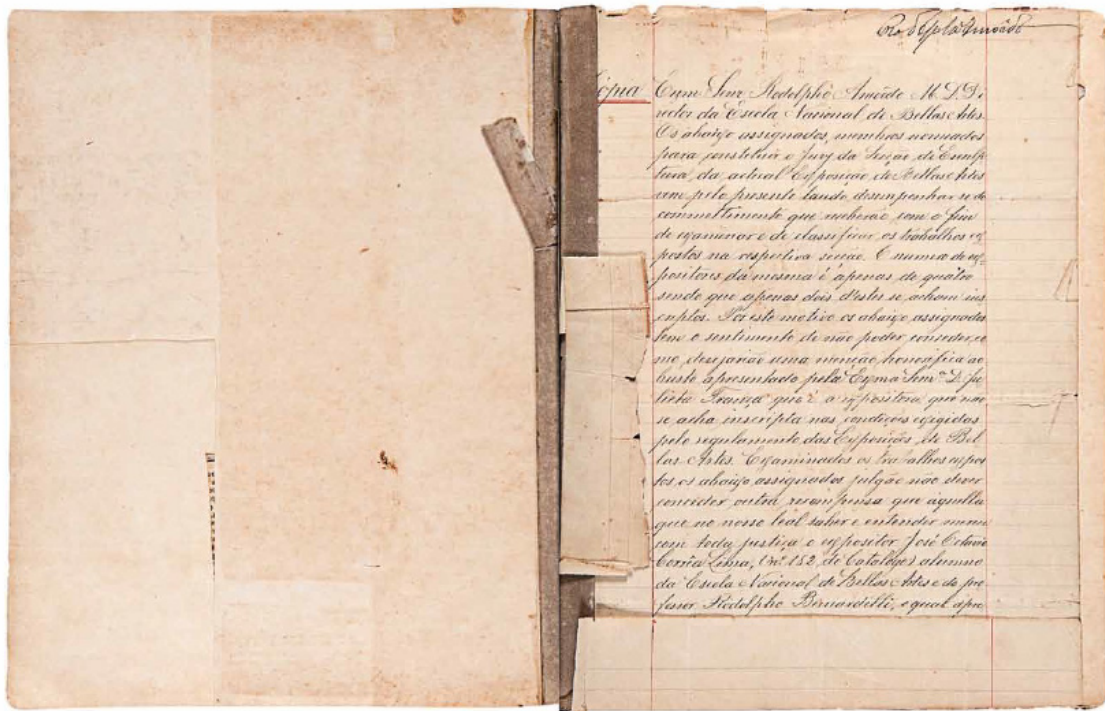 Cópia
Exmo Snr Rodolpho Amoêdo M. D. Di-
rector da Escola Nacional de Bellas Artes.
Os abaixo assignados, membros nomeados
para constituir o Jury da Secção de Esculp-
tura, da actual Exposição de Bellas Artes
vem pelo presente laudo, desempenhar-se do
commettimento que receberão com o fim
de examinar e de classificar os trabalhos ex-
postos na respectiva secção. O numero de ex-
positores da mesma é apenas de quatro
sendo que apenas dois d'estes se acham ins-
criptos. Por este motivo os abaixo assignados
tem o sentimento de não poder conceder, co
mo desejarião uma menção honorifica ao
busto apresentado pela Exma Snra D. Ju
lieta França que é a expositora que não
se acha inscripta nas condições exigidas
pelo regulamento das Exposições de Bel
las Artes. Examinados os trabalhos expos
tos, os abaixo assignados julgão não dever
conceder outra recompensa que áquella
que no nosso leal saber e entender merece
com toda justiça o expositor José Octavio
Corrêa Lima, (nº 152, do Catalogo) alumno
da Escola Nacional de Bellas Artes e do pro
fessor Rodolpho Bernardelli, o qual apre